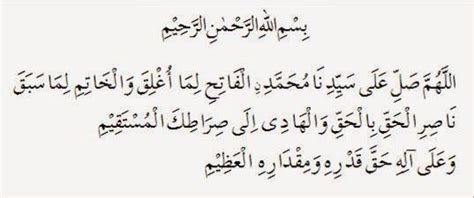 بِسْمِ اللهِ الرَّحْمٰنِ الرَّحِيْمِ
اللَّهُمَّ صَلِّ عَلَى سَيِّدِنَا مُحَمَّدِ ۨالْفَاتِحِ لِمَا أُغْلِقَ وَالْخَاتِمِ لِمَا سَبَقَ
نَاصِرِ الْحَقِّ بِالْحَقِّ وَالْهَادِى اِلَى صِرَاطِكَ الْمُسْتَقِيْمِ
وَعَلَى آلِهِ حَقَّ قَدْرِهِ وَمِقْدَارِهِ الْعَظِيْمِ